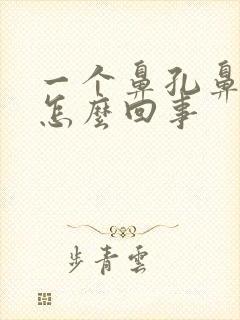 一个鼻孔鼻
怎麼回事
步青雲